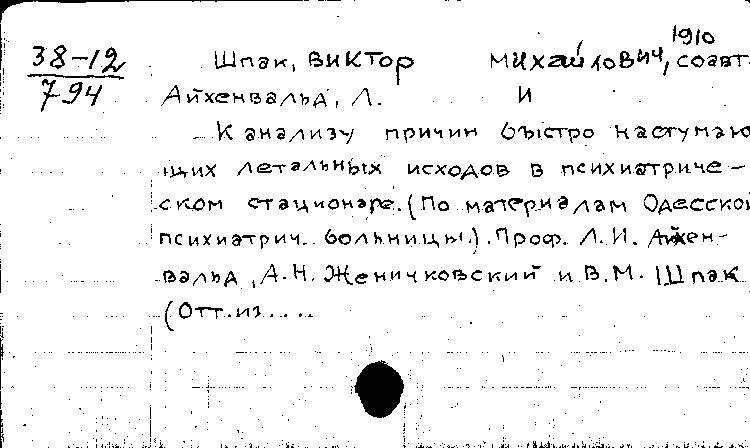 1910
38-12
794
Шпак, Виктор Михайлович, соавт.
Айхенвальд, Л. И
К анализу причин быстро наступаю
щих летальных исходов в психиатриче-
ском стационаре. (По материалам Одесской
психиатрич. больницы.). Проф. Л. И. Айхен-
вальд, А. Н. Женичковский и В. М. Шпак
(Отт. из....